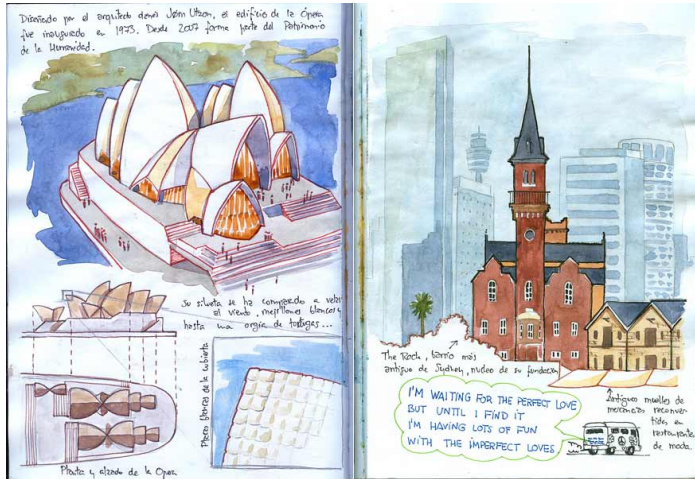 Diseñado por el arquitecto danés Jørn Utzon, el edificio de la Ópera
fue inaugurado en 1973. Desde 2007 forma parte del Patrimonio
de la Humanidad.
Su silueta se ha comparado a velas
al viento, mejillones blancos y
hasta una orgía de tortugas...
Piezas blancas de la cubierta
Planta y alzado de la Opera
The Rock, barrio más
antiguo de Sydney, nucleo de su fundación
I'M WAITING FOR THE PERFECT LOVE
BUT UNTIL I FIND IT
I'M HAVING LOTS OF FUN
WITH THE IMPERFECT LOVES
Antiguos muelles de
mercancías reconver
tidos en
restaurantes
de moda.